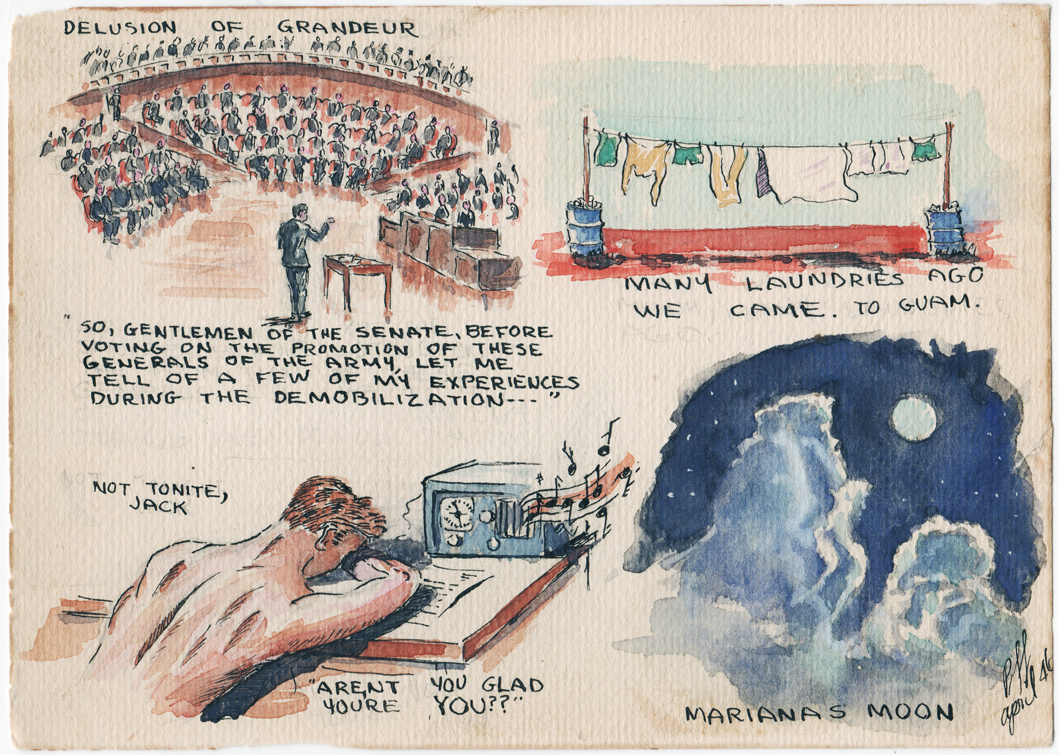 DELUSION OF GRANDEUR
"SO, GENTLEMEN OF THE SENATE, BEFORE
VOTING ON THE PROMOTION OF THESE
GENERALS OF THE ARMY, LET ME
TELL OF A FEW OF MY EXPERIENCES
DURING THE DEMOBILIZATION---"
MANY LAUNDRIES AGO
WE CAME. TO GUAM.
NOT TONITE,
JACK
"ARENT YOU GLAD
YOU'RE YOU??"
MARIANAS MOON
april 46